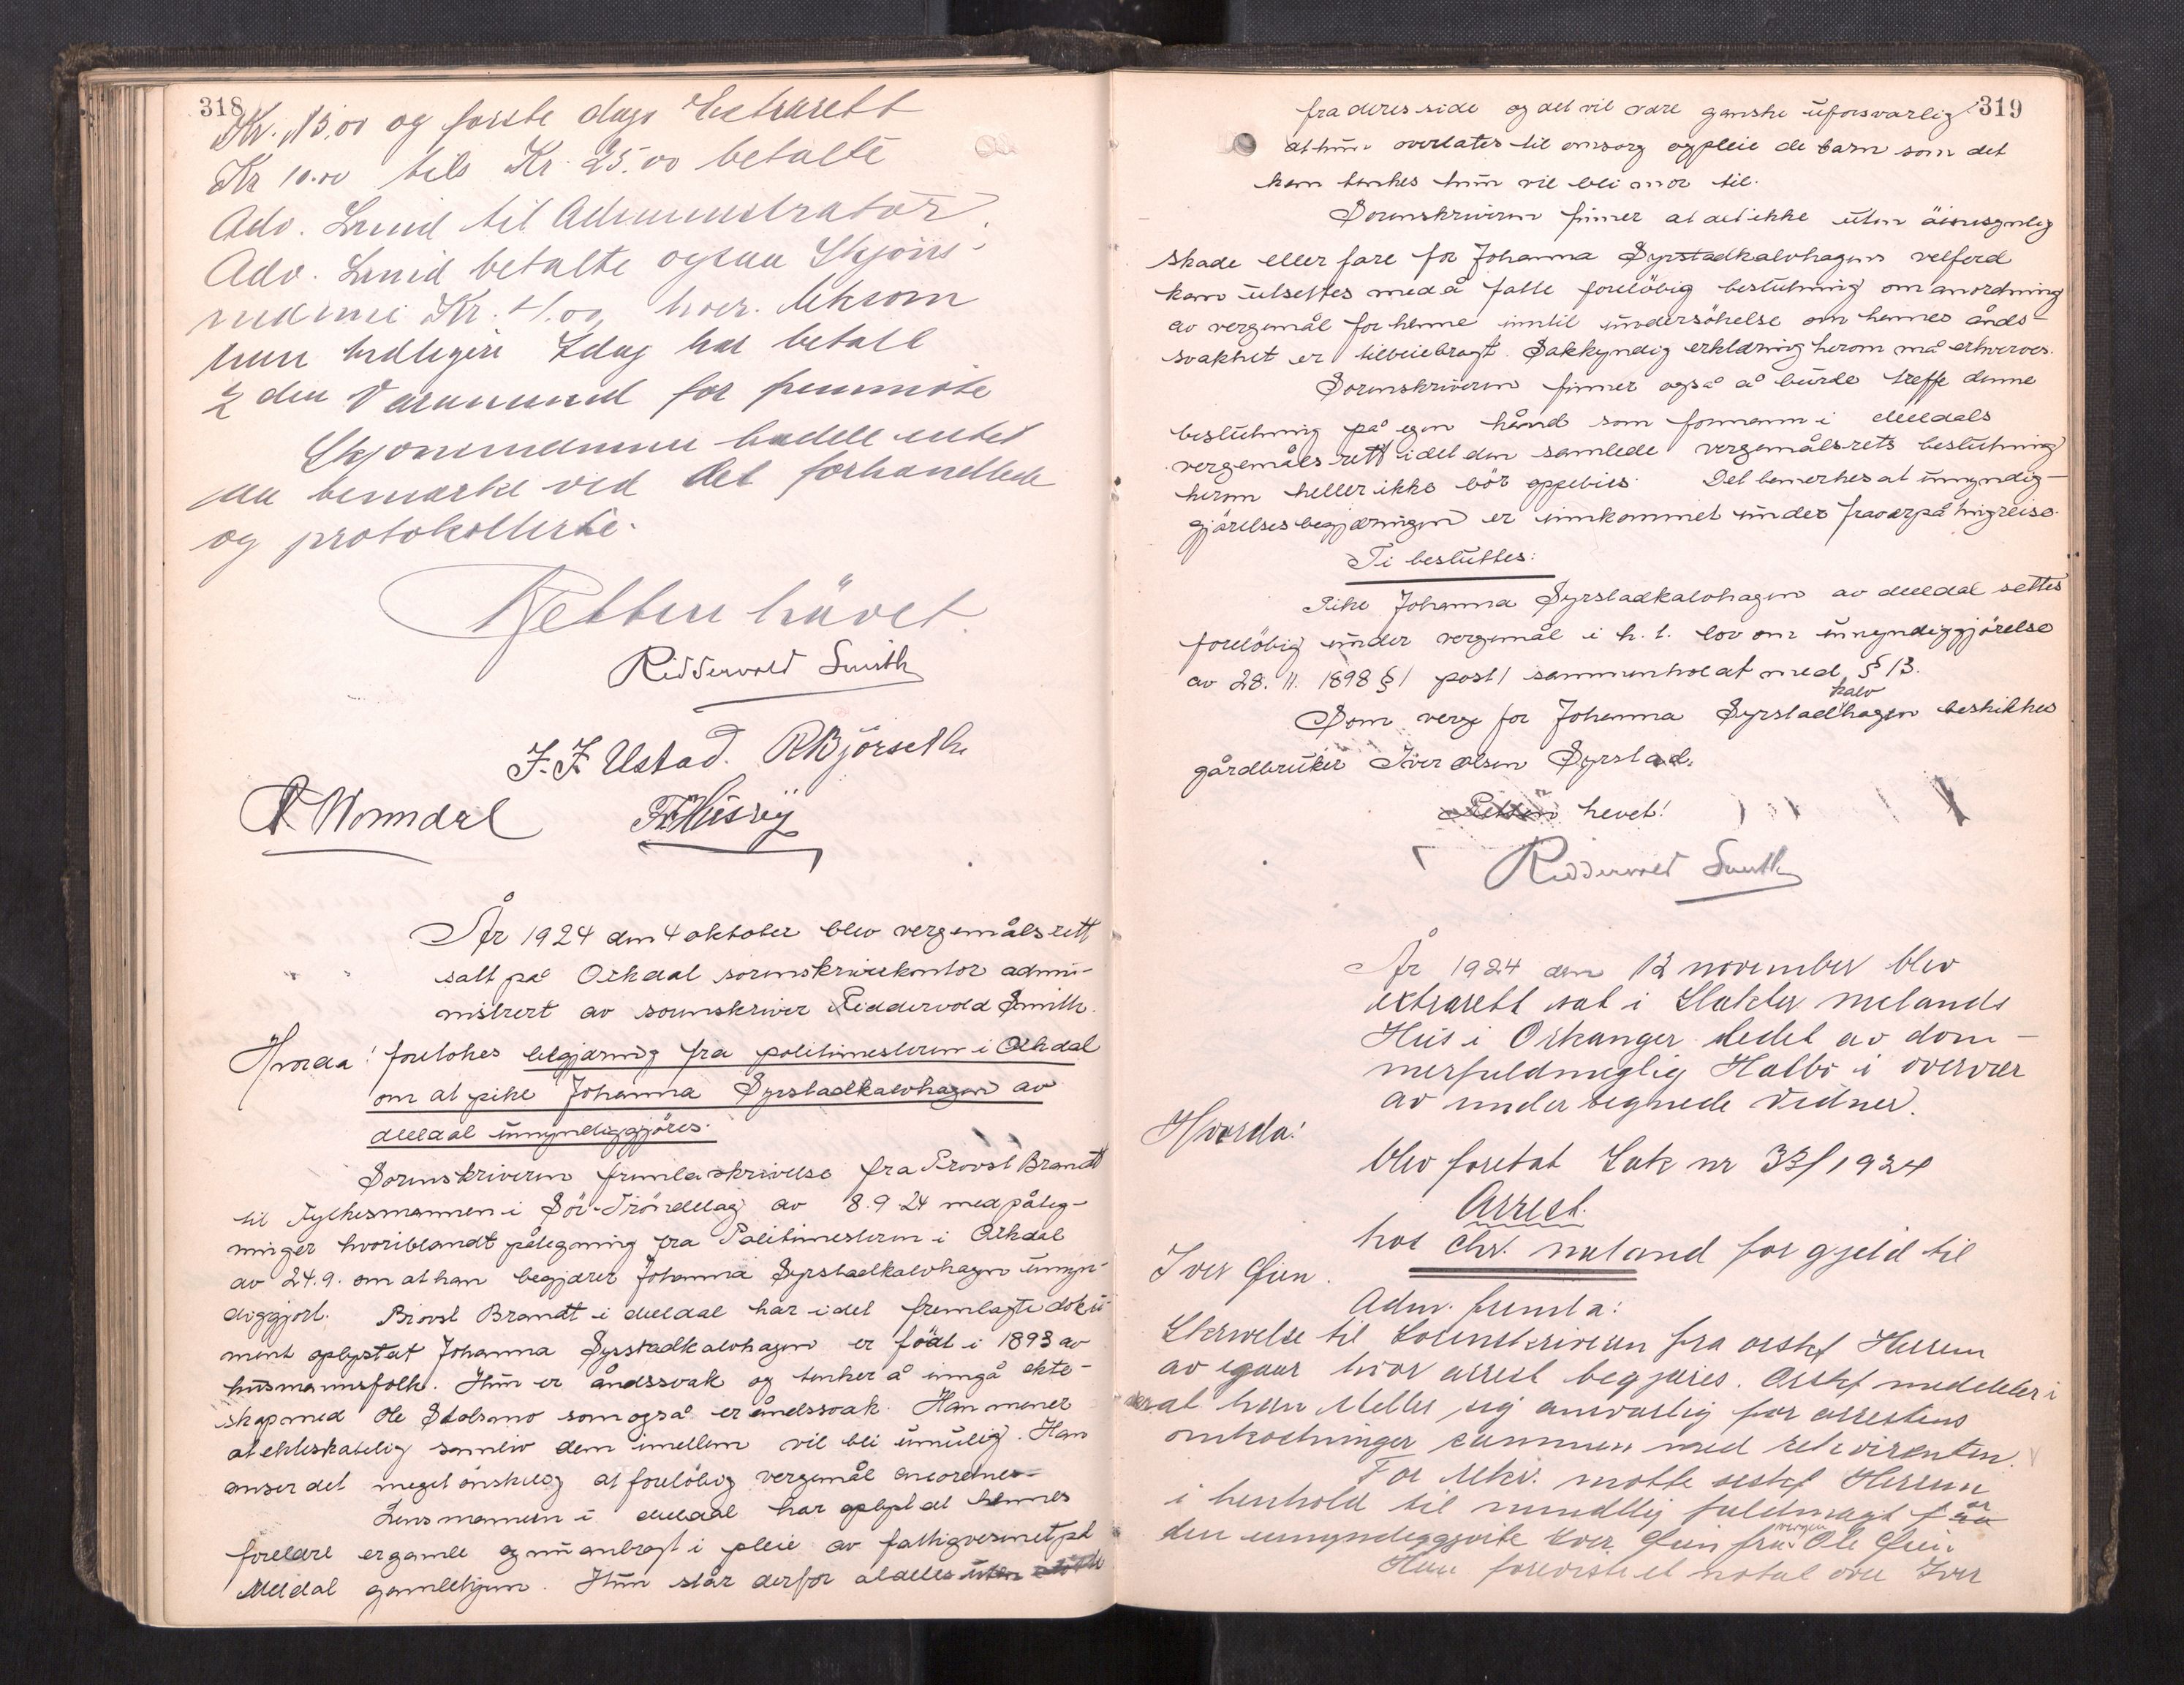 318
Kr. 15.00 og første dags Extrarett
Kr 10.00 tils Kr. 25.00 betalte
Adv. Lmid til Administrator.
Adv. Lmid betalte ogsaa Skjøns-
mdenne Kr. 4.00 hver. liksom
han tidligere Idag har betalt
den Varamand for fremmøte
Skjønsmdenne hadde intet
at bemærke ved det forhandlede
og protokollerte.
Retten hævet.
Ridderwold Smith
F. F. Ustad. R Bjørseth
A. Wormdal Fr Husby
År 1924 den 4 oktober blev vergemålsrett
satt på Orkdal sorenskriverkontor admi-
nistrert av sorenskriver Riddervold Smith.
Hvorda! foretokes begjæring fra politimesteren i Orkdal
om at pike Johanna Syrstadkalvhagen av
Meldal umyndiggjøres.
Sorenskriveren fremla skrivelse fra Provst Brandt
til Fylkesmannen i Sör-Tröndelag av 8.9.24 med påteg-
ninger hvoriblandt påtegning fra Politimesteren i Orkdal
av 24.9. om at han begjærer Johanna Syrstadkalvhagen umyn-
diggjort. Provst Brandt i Meldal har i det fremlagte doku-
ment oplyst at Johanna Syrstadkalvhagen er födt i 1893 av
husmannsfolk. Hun er åndssvak og tenker å inngå ekte-
skap med Ole Stolsmo som også er åndssvak. Han mener
at ekteskabelig samliv dem imellem vil bli umulig. Han
anser det meget önskelig at forelöbig vergemål anordnes.
Lensmannen i Meldal har oplyst at hennes
foreldre er gamle og nu anbragt i pleie av fattigvesenet på
Meldal gamlehjem. Hun står derfor aldeles uten
319
fra deres side og det vil være ganske uforsvarlig
at hun overlates til omsorg og pleie de barn som det
kan tenkes hun vil bli mor til.
Sorenskriveren finner at det ikke uten öiensynlig
skade eller fare for Johanna Syrstadkalvhagens velferd
kan utsettes med å fatte forelöbig beslutning om anordning
av vergemål for henne inntil undersökelse om hennes ånds-
svakhet er tilveiebragt. Sakkyndig erklæring herom må erhverves.
Sorenskriveren finner også å burde treffe denne
beslutning på egen hånd som formann i Meldals
vergemålsrett idet den samlede vergemålsrets beslutning
herom heller ikke bör oppebies. Det bemerkes at umyndig-
gjörelsesbegjæringen er innkommet under fravær på tingreise.
Ti besluttes:
Pike Johanna Syrstadkalvhagen av Meldal settes
forelöbig under vergemål i h. t. lov om umyndiggjörelse
av 28. 11. 1898 § 1 post 1 sammenholdt med § 13.
Som verge for Johanna Syrstadkalvhagen beskikkes
gårdbruker Iver Olsen Syrstad.
Retten hevet!
Ridderwold Smith
År 1924 den 12 november blev
extrarett sat i Slakter Melands
Hus i Orkanger ledet av dom-
merfuldmegtig Halbo i overvær
av undertegnede Vidner.
Hvorda:
blev foretat Sak nr 33/1924
Arrest.
hos Chr. Meland for gjeld til
Iver Gien.
Adm. fremla:
Skrivelse til Sorenskriveren fra orskf Herrem
av igaar hvor arrest begjæres. Orskf meddeler i
den at han stiller sig ansvarlig for arrestens
omkostninger sammen med rekvirenten.
For rekv. møtte orskf Herrem
i henhold til mundtlig fuldmagt for
den umyndiggjorte Iver Gien fra vergen Ole Gien.
Han foreviste et notat over Iver